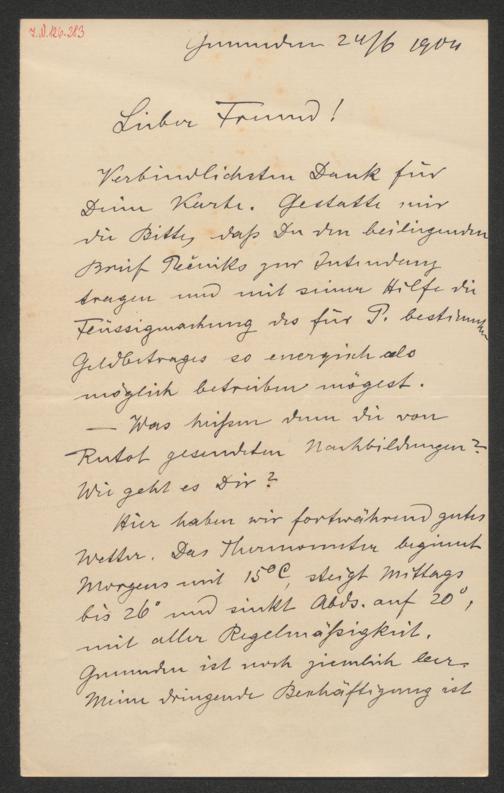 I.N. 126.213
Gmunden 24/6 1904
Lieber Freund!
Verbindlichsten Dank für
Deine Karte. Gestatte mir
die Bitte, daß Du den beiliegenden
Brief Pečniks zur Intendanz
tragen und mit seiner Hilfe die
Flüssigmachung des für P. bestimmten
Geldbetrages so energisch als
möglich betreiben mögest.
— Was heißen denn die von
Rutot gesendeten Nachbildungen?
Wie geht es Dir?
Hier haben wir fortwährend gutes
Wetter. Das Thermometer beginnt
Morgens mit 15°C, steigt Mittags
bis 26° und sinkt Abds. auf 20°,
mit aller Regelmäßigkeit.
Gmunden ist noch ziemlich leer.
Meine dringende Beschäftigung ist